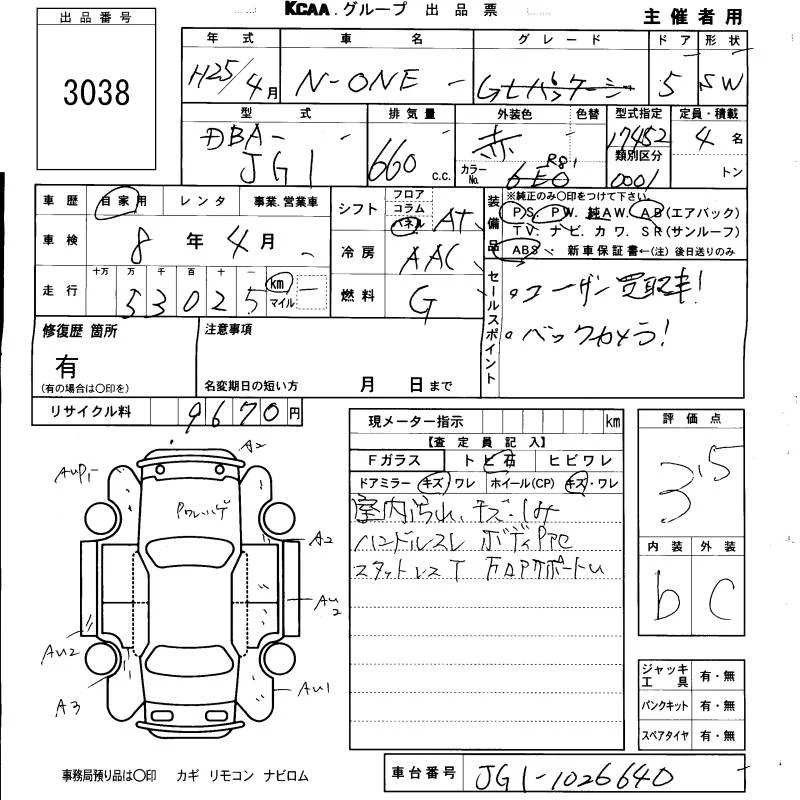 KCAA.グループ 出品票
主催者用
出品番号
3038
年式 車名 グレード ドア 形状
H25/4月 N-ONE - GLパッケージ 5 SW
型式 排気量 外装色 色替 型式指定 定員・積載
DBA- JG1 660 C.C. 赤 17452 4名
カラーNo. 6E0 R81 類別区分 0001 トン
車歴 自家用 レンタ 事業.営業車
車検 8年4月
走行 十万 万 千 百 十 一 km マイル
53025
シフト フロア コラム パネル AT
冷房 AAC
燃料 G
装備品 ※純正のみ〇印をつけて下さい。
PS. PW. 純AW. AB(エアバック)
TV. ナビ. カワ. SR(サンルーフ)
ABS. 新車保証書←(注)後日送りのみ
セールスポイント
。ユーザー買取車!
。バックカメラ!
修復歴 箇所
有
(有の場合は〇印を)
注意事項
名変期日の短い方 月 日まで
リサイクル料 9670円
現メーター指示 km
【査定員記入】
Fガラス トビ石 ヒビワレ
ドアミラー キズ・ワレ ホイール(CP) キズ・ワレ
室内汚れ、キズ・しみ
ハンドルスレ
スタットレスT
評価点
3.5
内装 外装
b C
A2
AUP1
A2
AU2
AU2
A3
AU1
ジャッキ工具 有・無
パンクキット 有・無
スペアタイヤ 有・無
事務局預り品は〇印 カギ リモコン ナビロム
車台番号 JG1-1026640